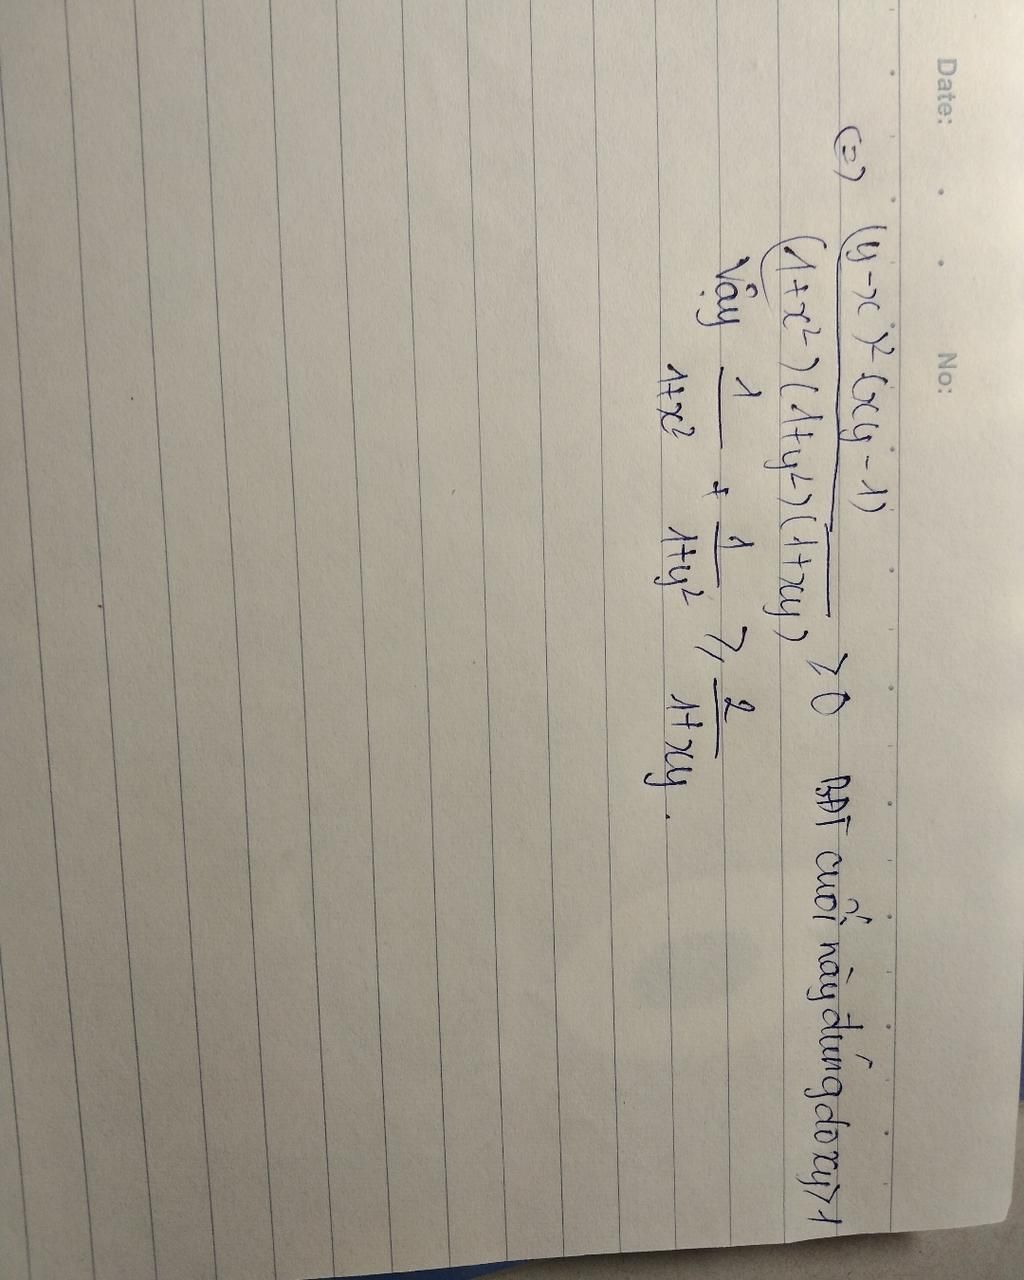 Date: No:
(=) (y-x)²(xy-1) / (1+x²)(1+y²)(1+xy) ≥ 0 BĐT cuối này đúng do xy>1
Vậy 1/1+x² + 1/1+y² ≥ 2/1+xy.